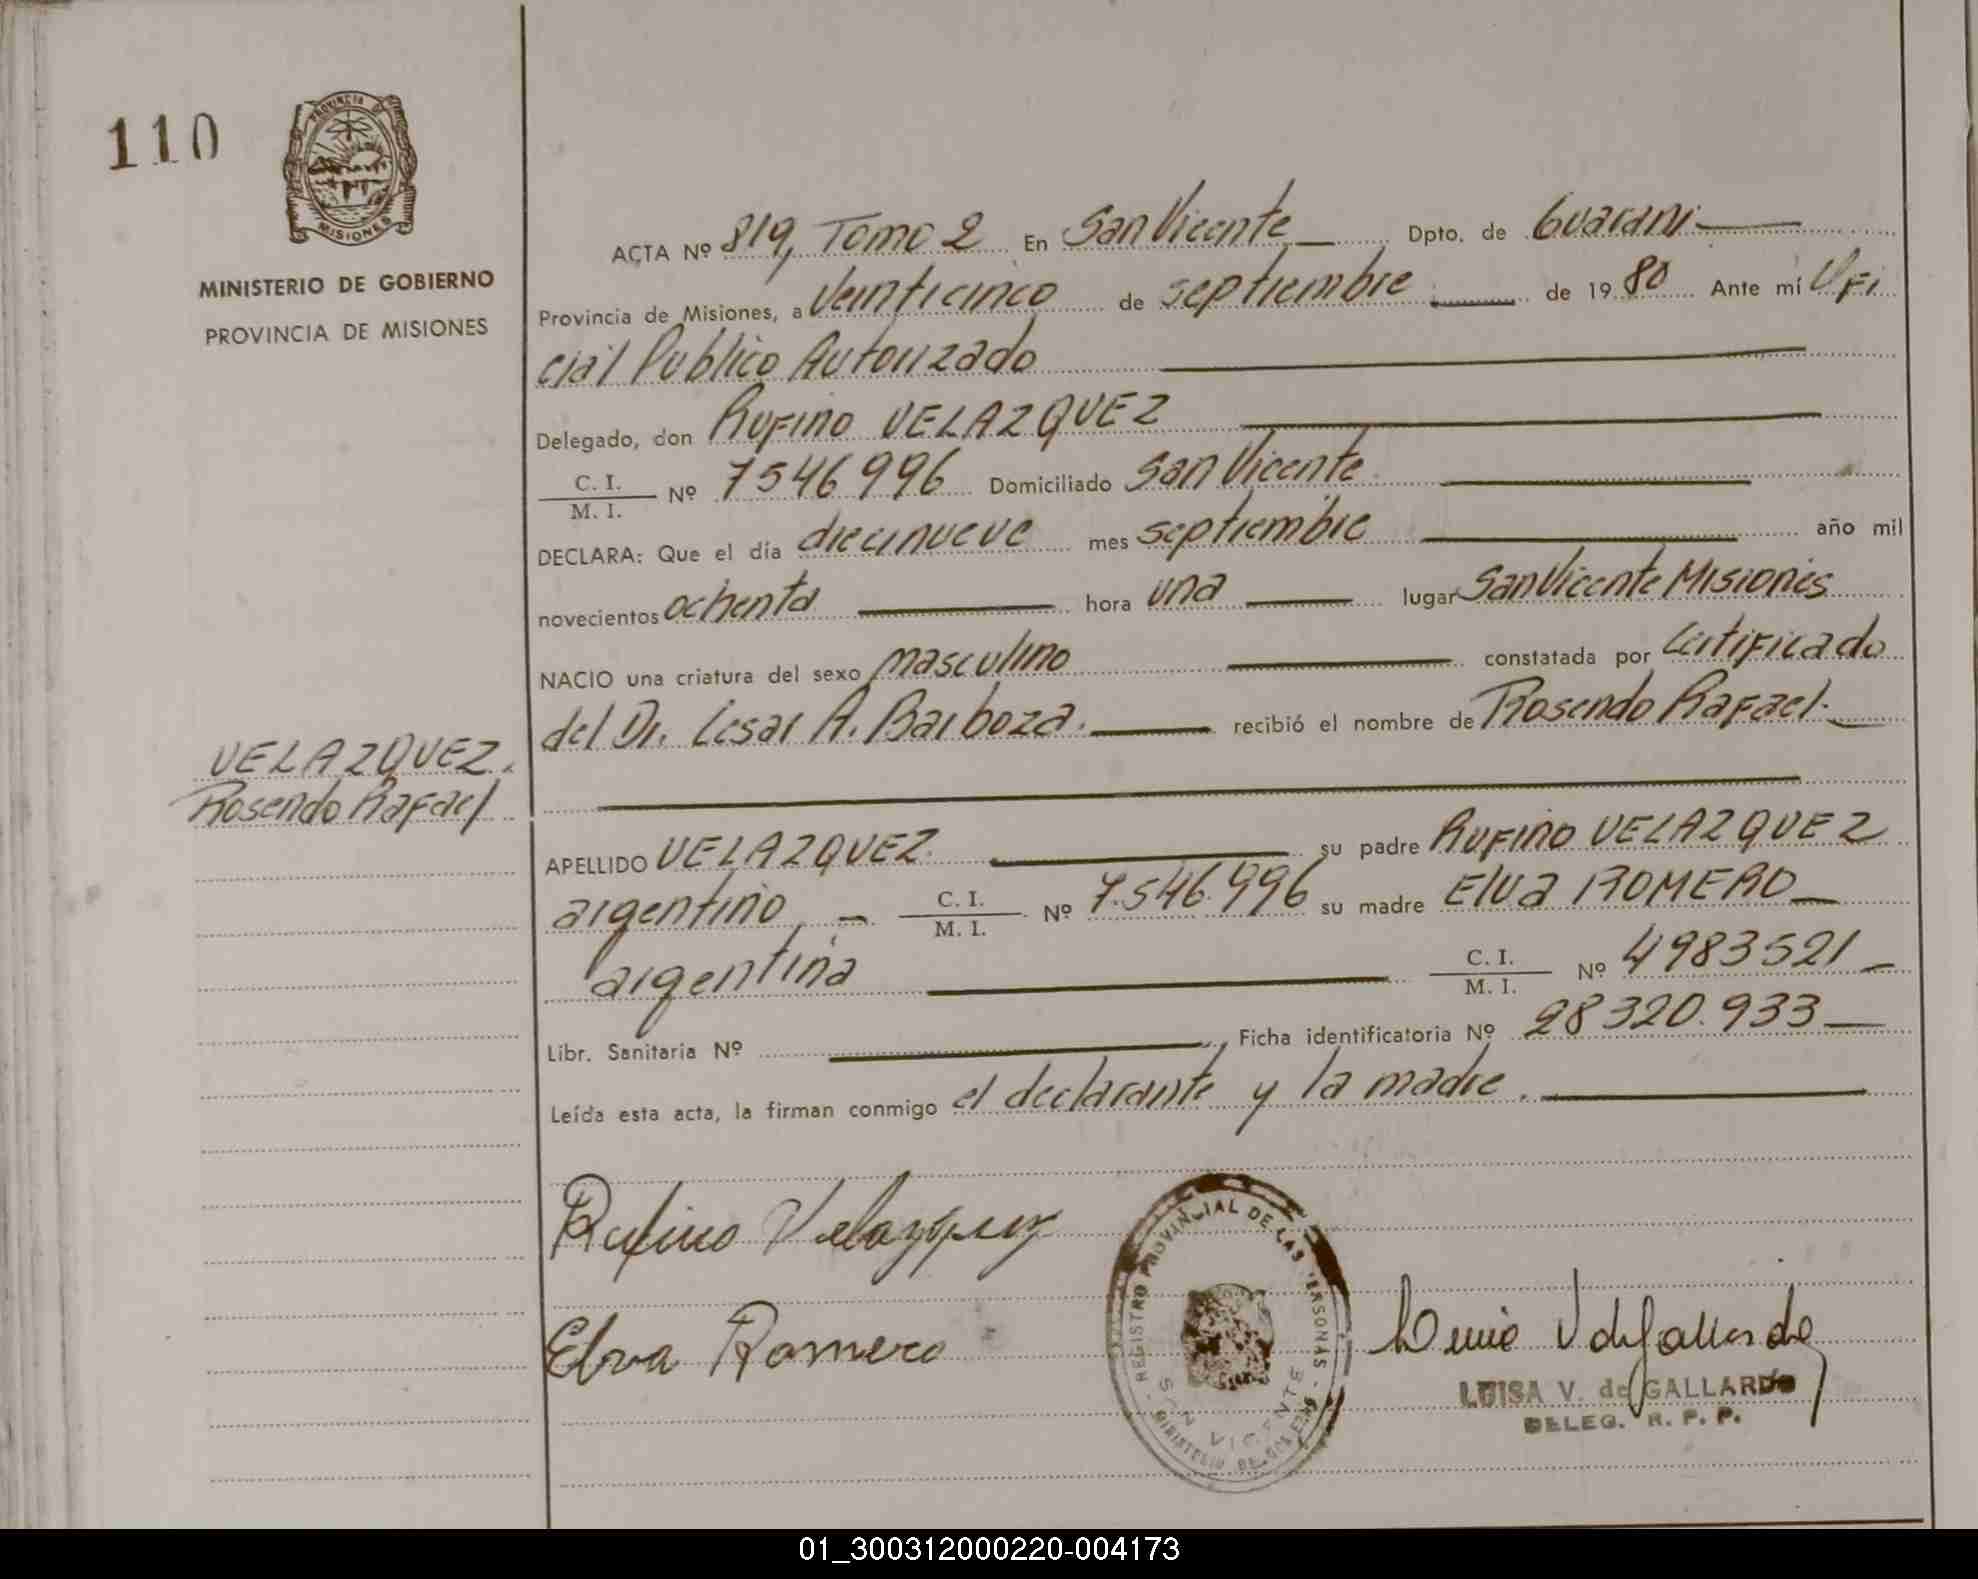 110
PROVINCIA D
MISIONES
MINISTERIO DE GOBIERNO
PROVINCIA DE MISIONES
VELAZQUEZ.
Rosendo Rafael
ACTA Nº 819, Tomo 2 En San Vicente Dpto. de Guarani
Provincia de Misiones, a Veinticinco de septiembre de 1980 Ante mí Ofi
cial Publico Autorizado
Delegado, don Rufino VELAZQUEZ
C. I.
M. I. Nº 7546996 Domiciliado San Vicente
DECLARA: Que el día diecinueve mes septiembre año mil
novecientos ochenta hora una lugar San Vicente Misiones
NACIO una criatura del sexo masculino constatada por Certificado
del Dr. Cesar A. Barboza. recibió el nombre de Rosendo Rafael.
APELLIDO VELAZQUEZ su padre Rufino VELAZQUEZ
argentino C. I.
M. I. Nº 7.546.996 su madre Elva ROMERO
argentina C. I.
M. I. Nº 4983521
Libr. Sanitaria Nº Ficha identificatoria Nº 28320.933
Leída esta acta, la firman conmigo el declarante y la madre.
Rufino Velazquez
Elva Romero
REGISTRO PROVINCIAL DE LAS PERSONAS
SAN VICENTE
MINISTERIO DE GOBIERNO
Luisa V de Gallardo
LUISA V. de GALLARDO
DELEG. R. P. P.
01_300312000220-004173